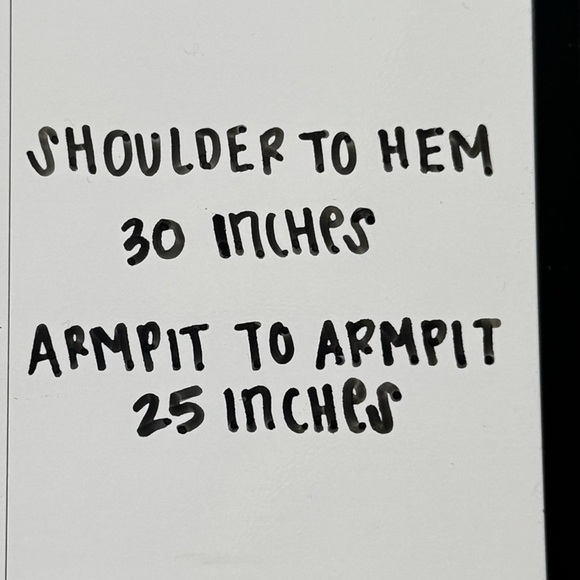 SHOULDER TO HEM
30 INCHES
ARMPIT TO ARMPIT
25 INCHES